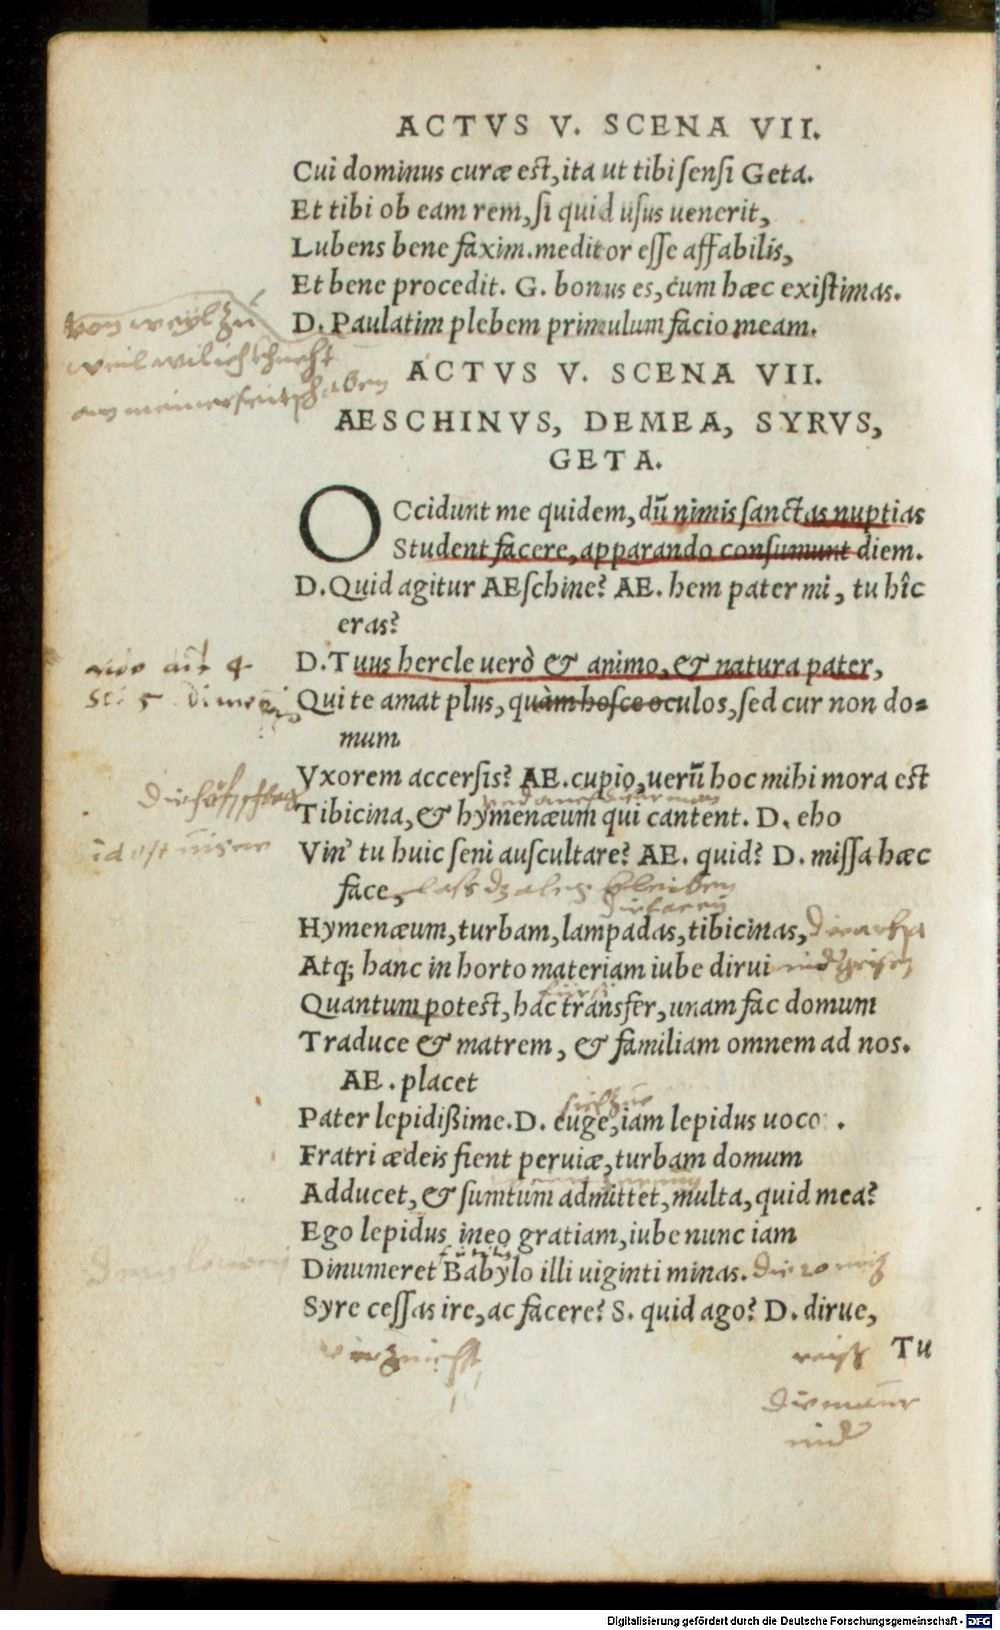 ACTVS V. SCENA VII.
Cui dominus curæ est, ita ut tibi sensi Geta.
Et tibi ob eam rem, si quid usus uenerit,
Lubens bene faxim. meditor esse affabilis,
Et bene procedit. G. bonus es, cum hæc existimas.
von weyl zu
D. Paulatim plebem primulum facio meam.
ACTVS V. SCENA VII.
AESCHINVS, DEMEA, SYRVS,
GETA.
OCcidunt me quidem, dū nimis sanctas nuptias
Student facere, apparando consumunt diem.
D. Quid agitur AEschine? AE. hem pater mi, tu hîc
eras?
D. Tuus hercle uerò & animo, & natura pater,
Qui te amat plus, quàm hosce oculos, sed cur non do=
mum
Vxorem accersis? AE. cupio, uerū hoc mihi mora est
Tibicina, & hymenæum qui cantent. D. eho
id est
Vin' tu huic seni auscultare? AE. quid? D. missa hæc
face,
bleiben
Hymenæum, turbam, lampadas, tibicinas,
Atq; hanc in horto materiam iube dirui
Quantum potest, hac transfer, unam fac domum
Traduce & matrem, & familiam omnem ad nos.
AE. placet
Pater lepidißime. D. euge, iam lepidus uoco .
Fratri ædeis fient peruiæ, turbam domum
Adducet, & sumtum admittet, multa, quid mea?
Ego lepidus ineo gratiam, iube nunc iam
Dinumeret Babylo illi uiginti minas.
Syre cessas ire, ac facere? S. quid ago? D. dirue,
Tu
die maur
Digitalisierung gefördert durch die Deutsche Forschungsgemeinschaft - DFG